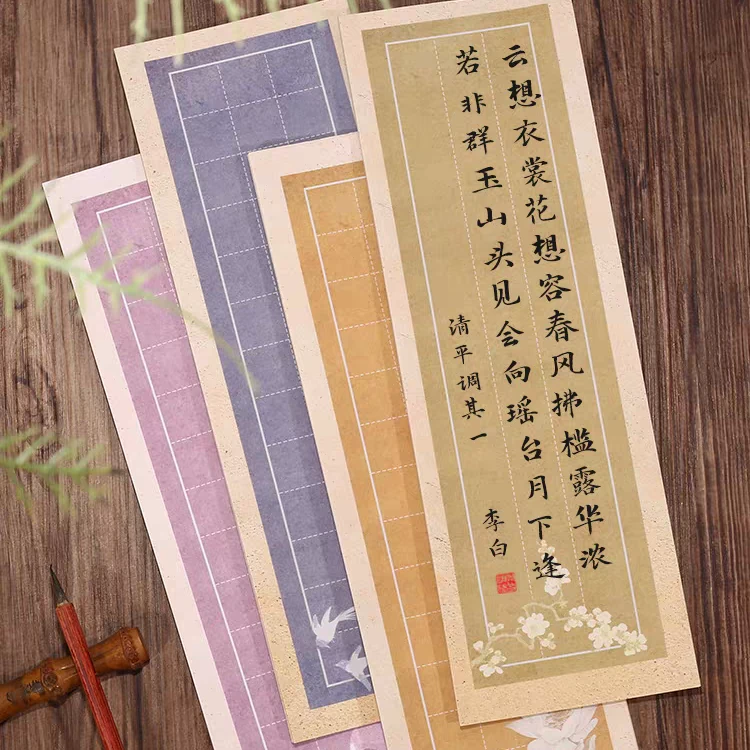 云想衣裳花想容春风拂槛露华浓
若非群玉山头见会向瑶台月下逢
清平调其一
李白